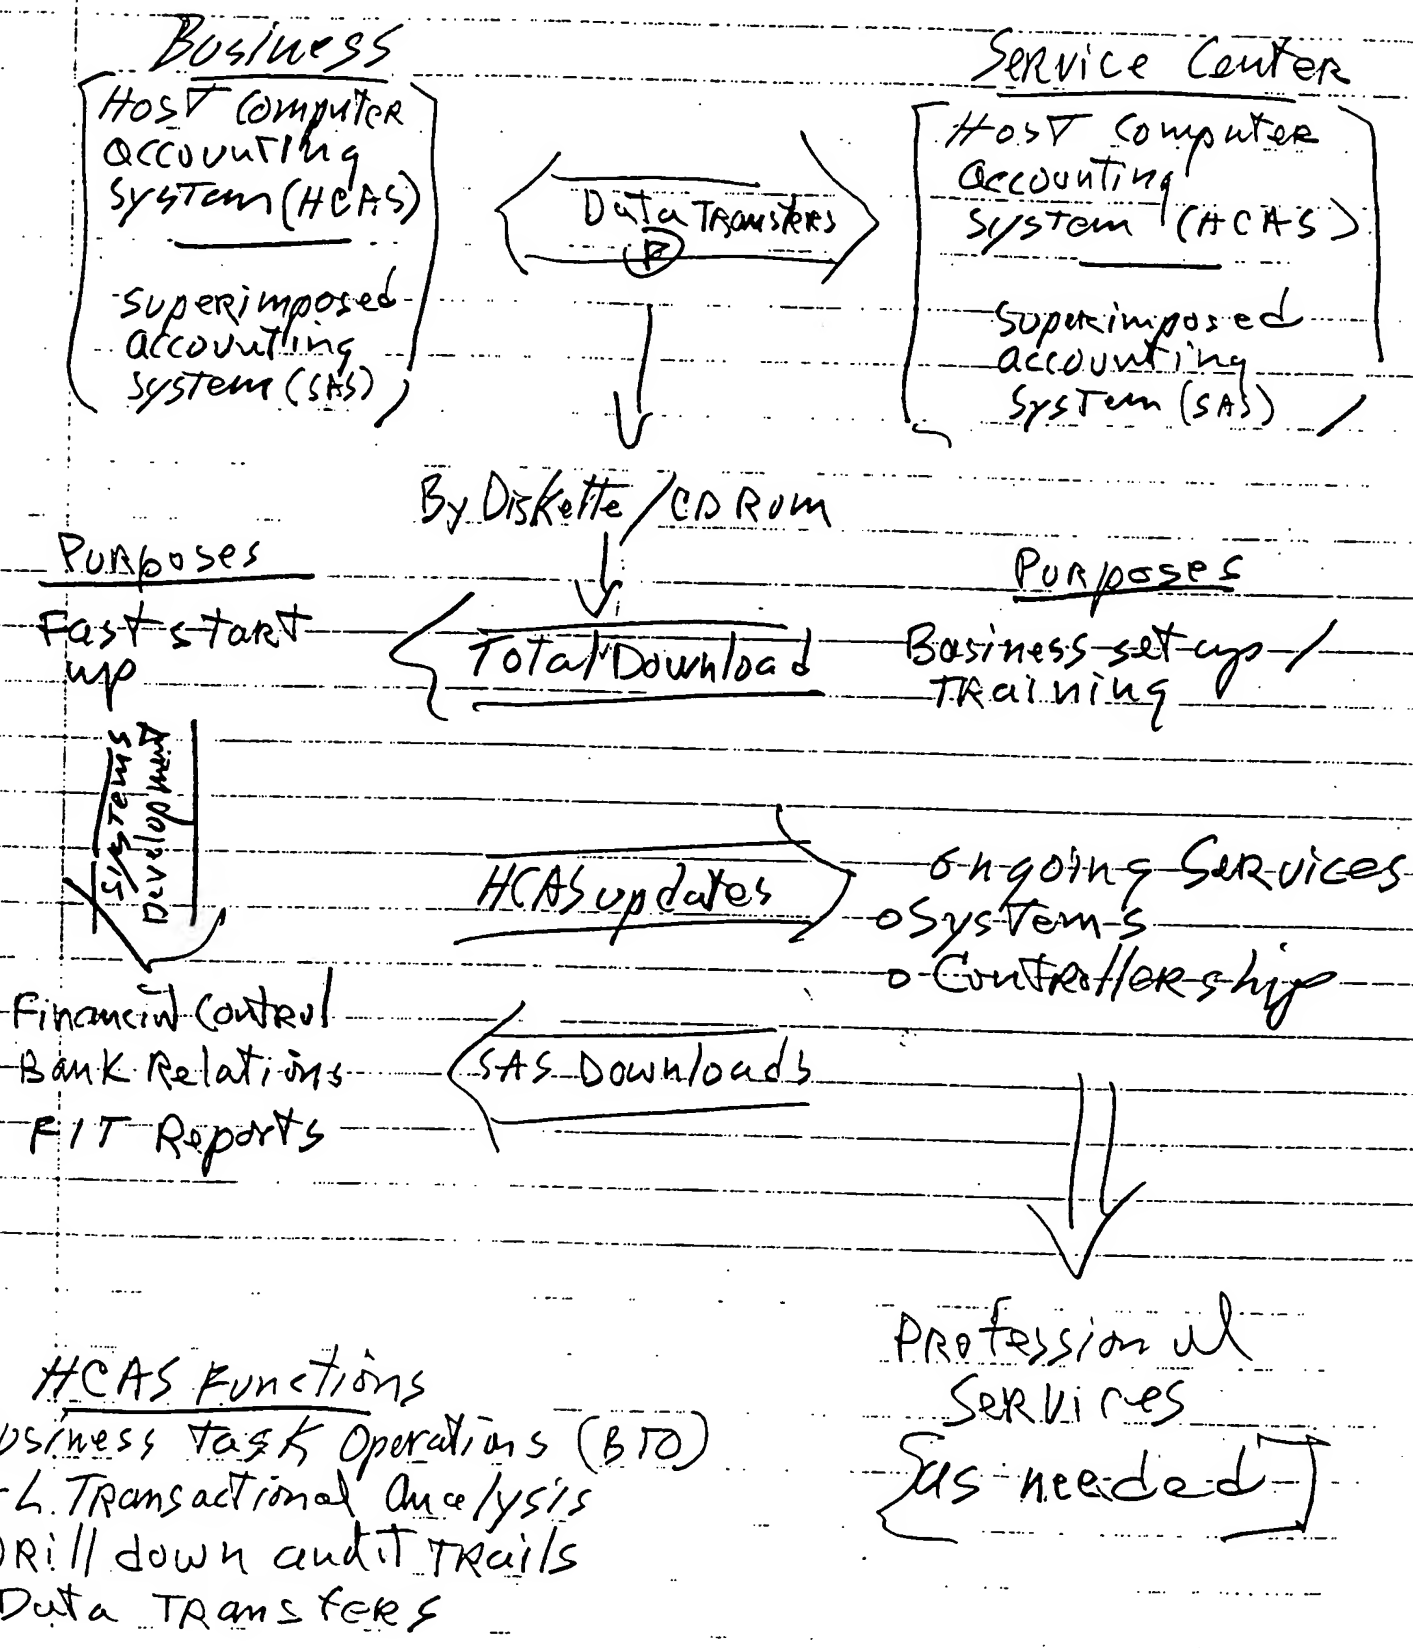 Business
Host Computer
accounting
system (HCAS)
superimposed
accounting
system (SAS)
Data Transfers
Service Center
Host Computer
accounting
system (HCAS)
superimposed
accounting
system (SAS)
By Diskette / CD Rom
Purposes
Fast start
up
Total Download
Purposes
Business set-up /
Training
Systems
Development
HCAS updates
ongoing Services
o Systems
o Controllership
Financial Control
Bank Relations
FIT Reports
SAS Downloads
Professional
Services
[as needed]
HCAS Functions
usiness task Operations (BTO)
-L Transactional analysis
Drill down audit Trails
Data Transfers